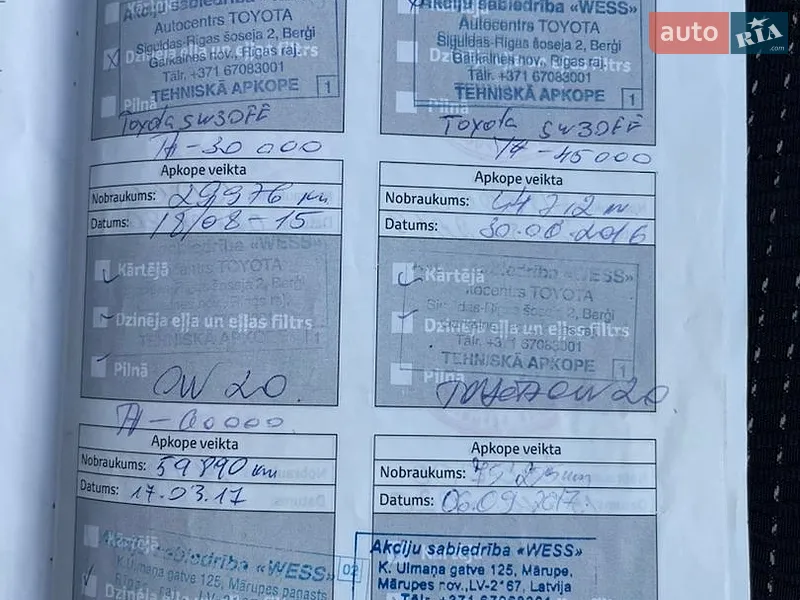 Akciju sabiedrība «WESS»
Autocentrs TOYOTA
Siguldas-Rīgas šoseja 2, Berģi
Garkalnes nov., Rīgas raj.
Dzinēja eļļa un eļļas filtrs
Tālr. +371 67083001
TEHNISKĀ APKOPE 1
Pilnā
Toyota 5W30FE
TA-30 000
Akciju sabiedrība «WESS»
Autocentrs TOYOTA
Siguldas-Rīgas šoseja 2, Berģi
Garkalnes nov., Rīgas raj.
Tālr. +371 67083001
TEHNISKĀ APKOPE 1
Toyota 5W30FF
TA-45000
Apkope veikta
Nobraukums: 29976 km
Datums: 18/08-15
sabiedrība «WESS»
Kārtējā
TOYOTA
Dzinēja eļļa un eļļas filtrs
TEHNISKĀ APKOPE 1
Pilnā
OW 20.
TA-60000
Apkope veikta
Nobraukums:
Datums: 30.08.2016
sabiedrība «WESS»
Kārtējā
Autocentrs TOYOTA
Siguldas-Rīgas šoseja 2, Berģi
Dzinēja eļļa un eļļas filtrs
Tālr. +371 67083001
TEHNISKĀ APKOPE 1
Pilnā
TOYOTA OW20
Apkope veikta
Nobraukums: 59890 km
Datums: 17.03.17
Kārtējā
sabiedrība «WESS» 02
K. Ulmaņa gatve 125, Mārupes pagasts
Dzinēja eļļa
Apkope veikta
Nobraukums:
Datums: 06.09.2017.
Akciju sabiedrība «WESS»
K. Ulmaņa gatve 125, Mārupe,
Mārupes nov., LV-2167, Latvija
auto RIA .com